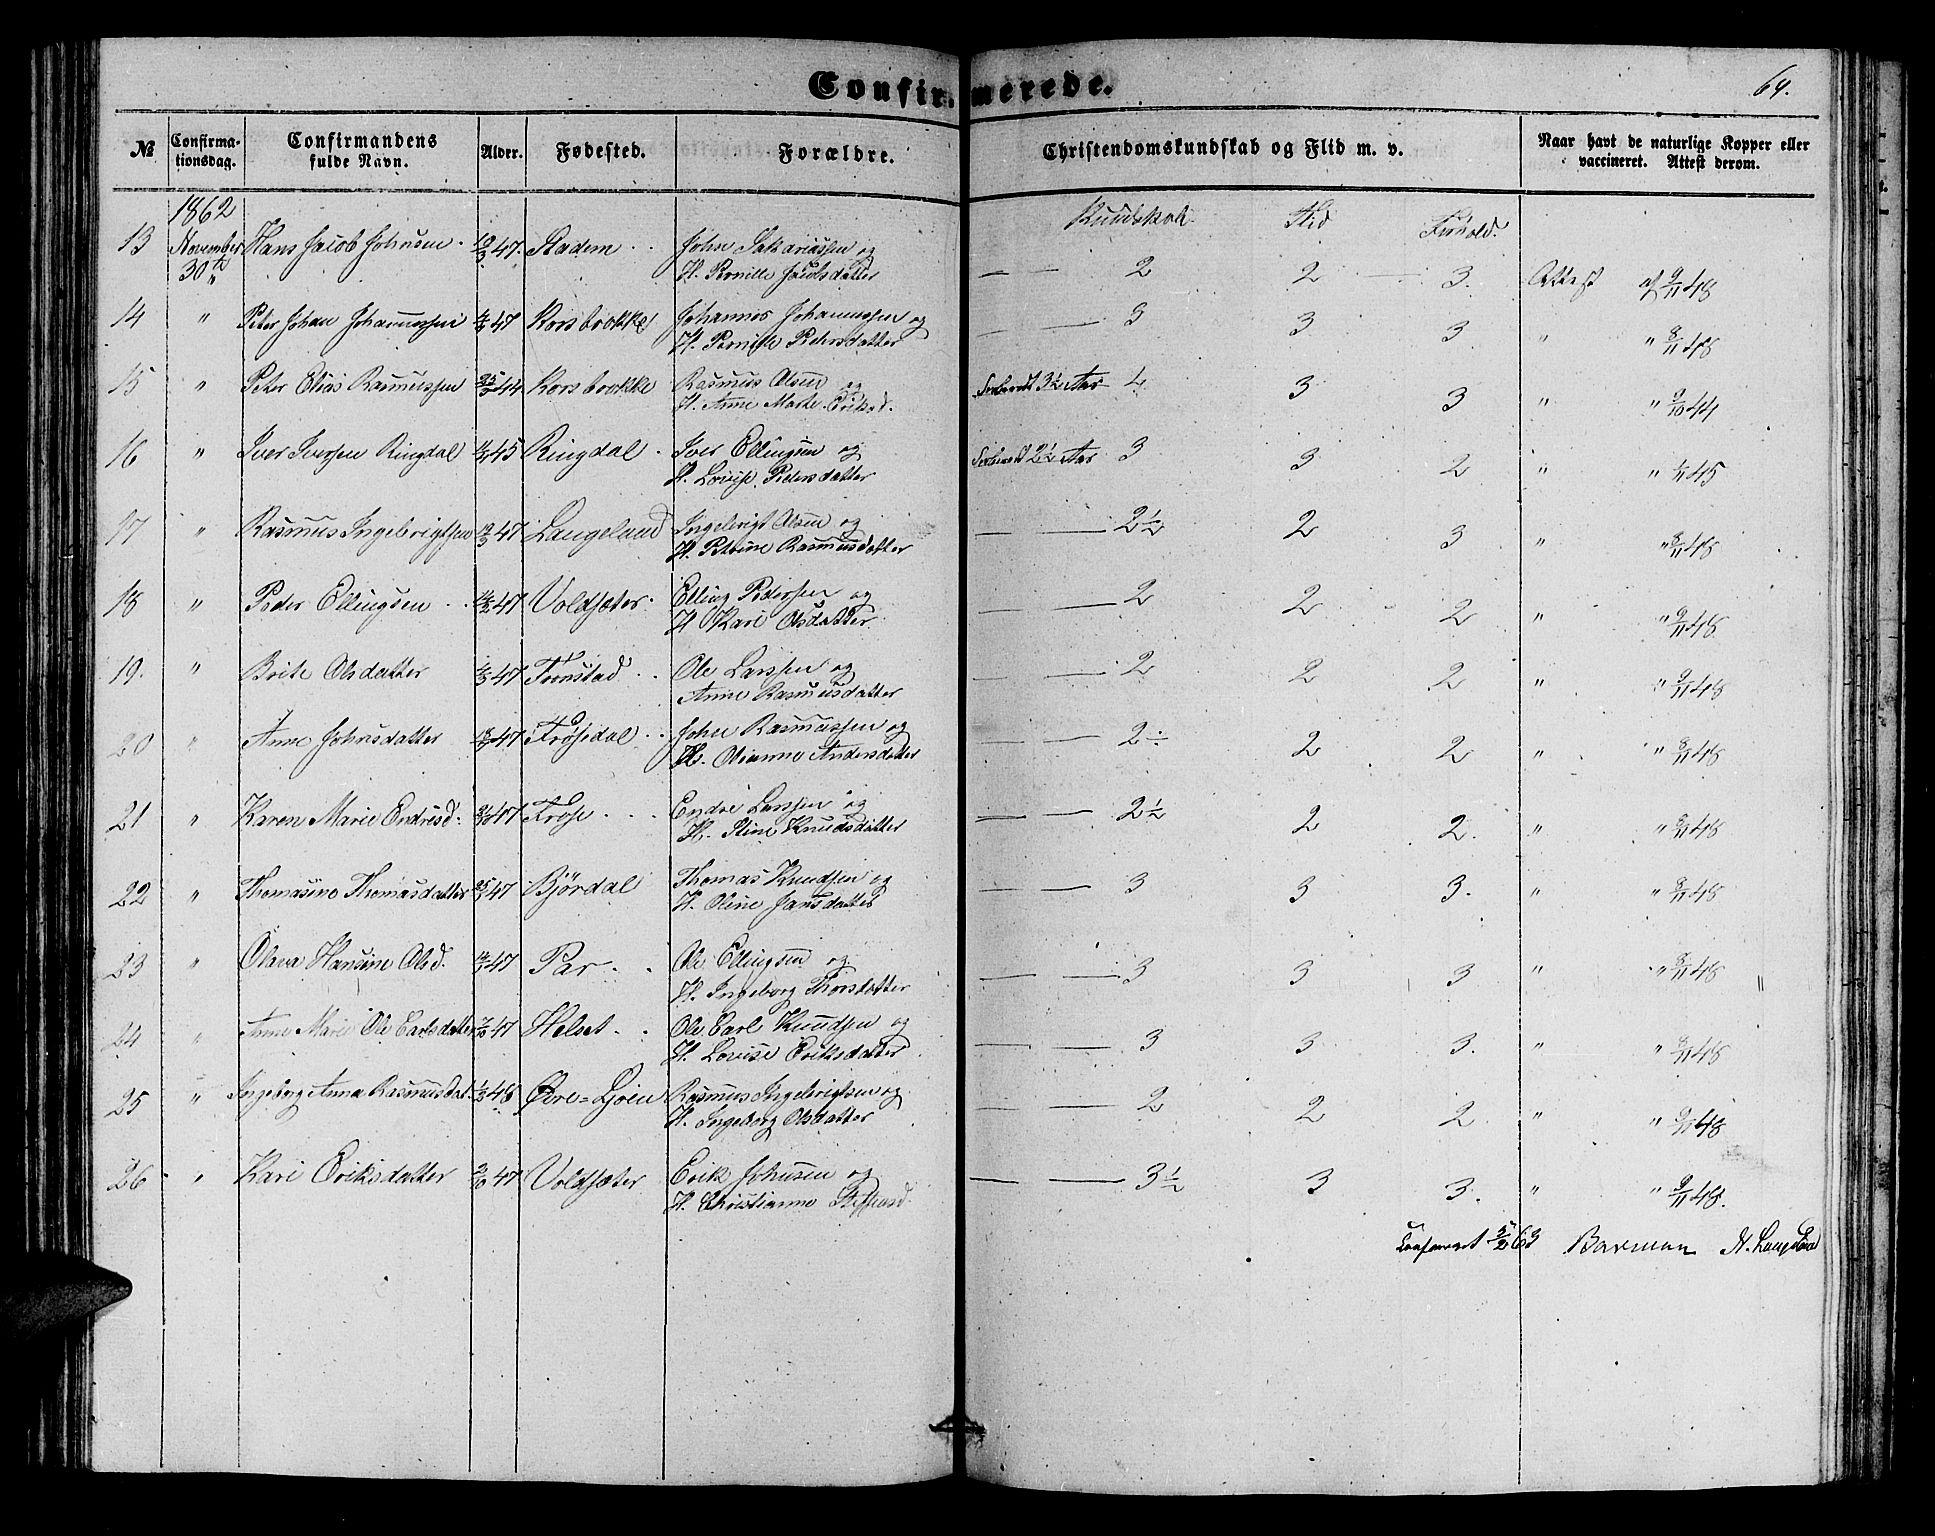 Confirmerede.
64.
№ Confirmationsdag. Confirmandens fulde Navn. Alder. Fødested. Forældre. Christendomskundskab og Flid m. v. Naar havt de naturlige Kopper eller vaccineret. Attest derom.
1862 Kundskab Flid Forhold.
13 November 30te Hans Jacob Johnsen 47. Stadem John Sakariassen og
H. Pernille Jacobsdatter 2 2 3. Attest af 9/11 48
14 " Peter Johan Johannessen 47 Korsbrække Johannes Johannessen og
H. Pernille Pedersdatter 3 3 3 " " 8/11 48
15 " Peter Elias Rasmussen 25/3 44 Korsbrække Rasmus Olsen og
H. Anne Marte Eriksd. 3½ Aar 4 3 3 " " 9/10 44
16 " Iver Iversen Ringdal 45 Ringdal Iver Ellingsen og
H. Lovise Pedersdatter 2½ Aar 3 3 2 " " 45
17 " Rasmus Ingebrigtsen 47 Langeland Ingebrigt Olsen og
H. Petrine Rasmusdatter 2½ 2 3 " " 8/11 48
18 " Peder Ellingsen 47 Voldsæter Elling Pedersen og
H. Kari Olsdatter 2 2 2 " " 9/11 48
19. " Brite Olsdatter 47 Tronstad Ole Larssen og
Anne Rasmusdatter 2 2 2 " " 9/11 48
20 " Anne Johnsdatter 47 Frøsedal John Rasmussen og
H. Olianna Andersdatter 2÷ 2 2 " " 8/11 48
21 " Karen Marie Endresd. 47 Frøse Endre Larssen og
H. Stine Knudsdatter 2½ 2 2. " " 8/11 48
22 " Thomasine Thomasdatter 47 Bjørdal Thomas Knudsen og
H. Oline Jansdatter 3 3 3. " " 8/11 48
23 " Olava Hansine Olsd. 47 Par Ole Ellingsen og
H. Ingeborg Thorsdatter 3 3 3 " " 8/11 48
24 " Anne Marie Ole Carlsdatter 47 Helset Ole Carl Knudsen og
H. Lovise Eriksdatter 3 3 3. " " 8/11 48
25 " Ingeborg Anna Rasmusdat. 48 Øvre=Ljøen Rasmus Ingebrigtsen og
H. Ingeborg Olsdatter 2 2 2. " " 9/11 48
26 " Kari Eriksdatter 47 Voldsæter Erik Johnsen og
H. Christianne Steffensd. 3½ 3 3. " " 9/11 48.
5/2 63 Barman N. Langeland